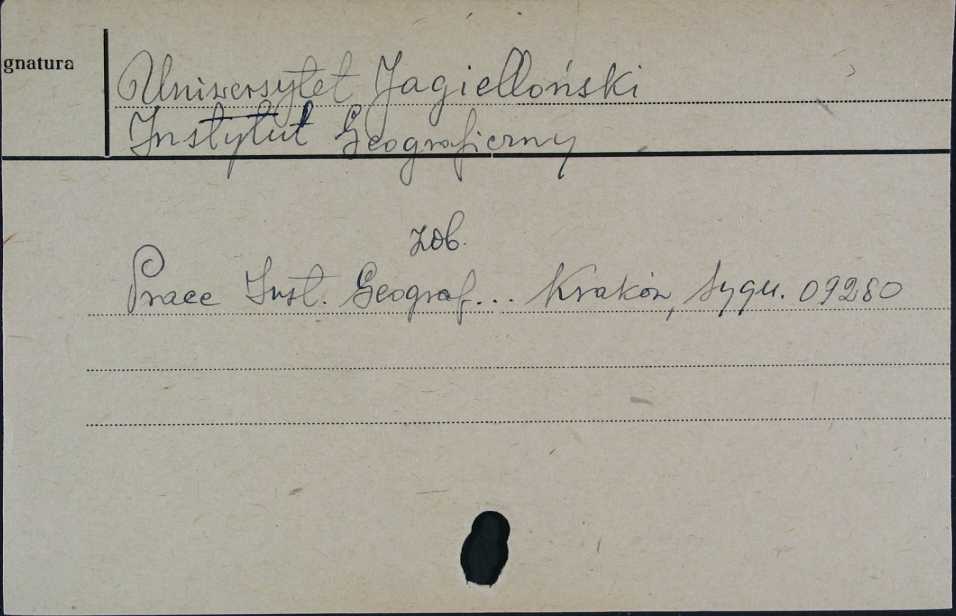 gnatura
Uniwersytet Jagielloński
Instytut Geograficzny
zob.
Prace Inst. Geograf... Kraków, sygn. 09280